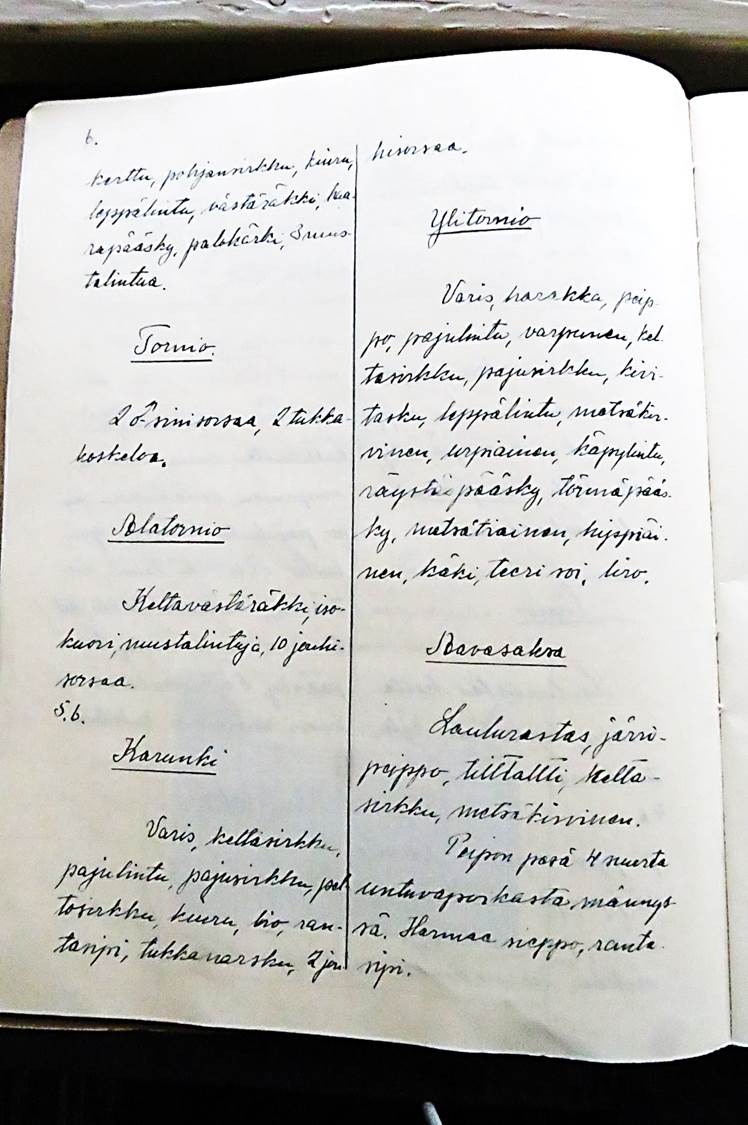 6.
kerttu, pohjansirkku, kiuru,
leppälintu, västäräkki, haa-
rapääsky, palokärki, 3 muus-
talintua.
Tornio.
2 ♂ sinisorsaa, 2 tukka-
koskeloa.
Alatornio
Keltavästäräkki, iso-
kuovi, mustalintuja, 10 jouhi-
sorsaa.
5.6.
Karunki
Varis, keltasirkku,
pajulintu, pajusirkku, pel-
tosirkku, kiuru, liro, ran-
tasipi, tukkanarsku, 2 jou
hisorsaa.
Ylitornio
Varis, harakka, peip-
po, pajulintu, varpunen, kel-
tasirkku, pajusirkku, kivi-
tasku, leppälintu, metsäkir-
vinen, urpiainen, käpylintu,
räystäspääsky, törmäpääs-
ky, metsätiainen, hippiäi-
nen, käki, teeri soi, liro.
Aavasaksa
Laulurastas, järri-
peippo, tilttaltti, kelta-
sirkku, metsäkirvinen.
Peipon pesä 4 nuorta
untuvapoikasta männys-
sä. Harmaa sieppo, ranta-
sipi.